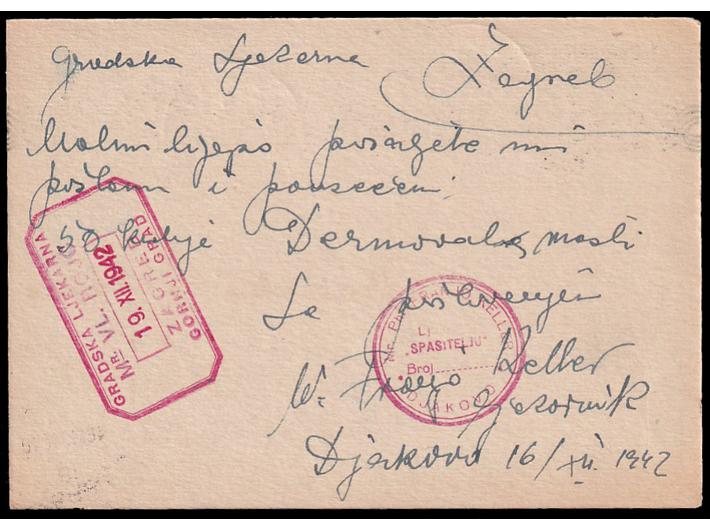 Gradska Ljekarna Zagreb
Molim lijepo pošaljete mi
poštom i pouzećem
50 kutije Dermoval masti
Sa poštovanjem
Mr. Franjo Keller
Ljekarnik
Djakovo 16/XII. 1942
GRADSKA LJEKARNA
Mr. VL.
19. XII. 1942
ZAGREB
GORNJI GRAD
Mr. Ph. KELLER
Lj
"SPASITELJU"
Broj
DJAKOVO